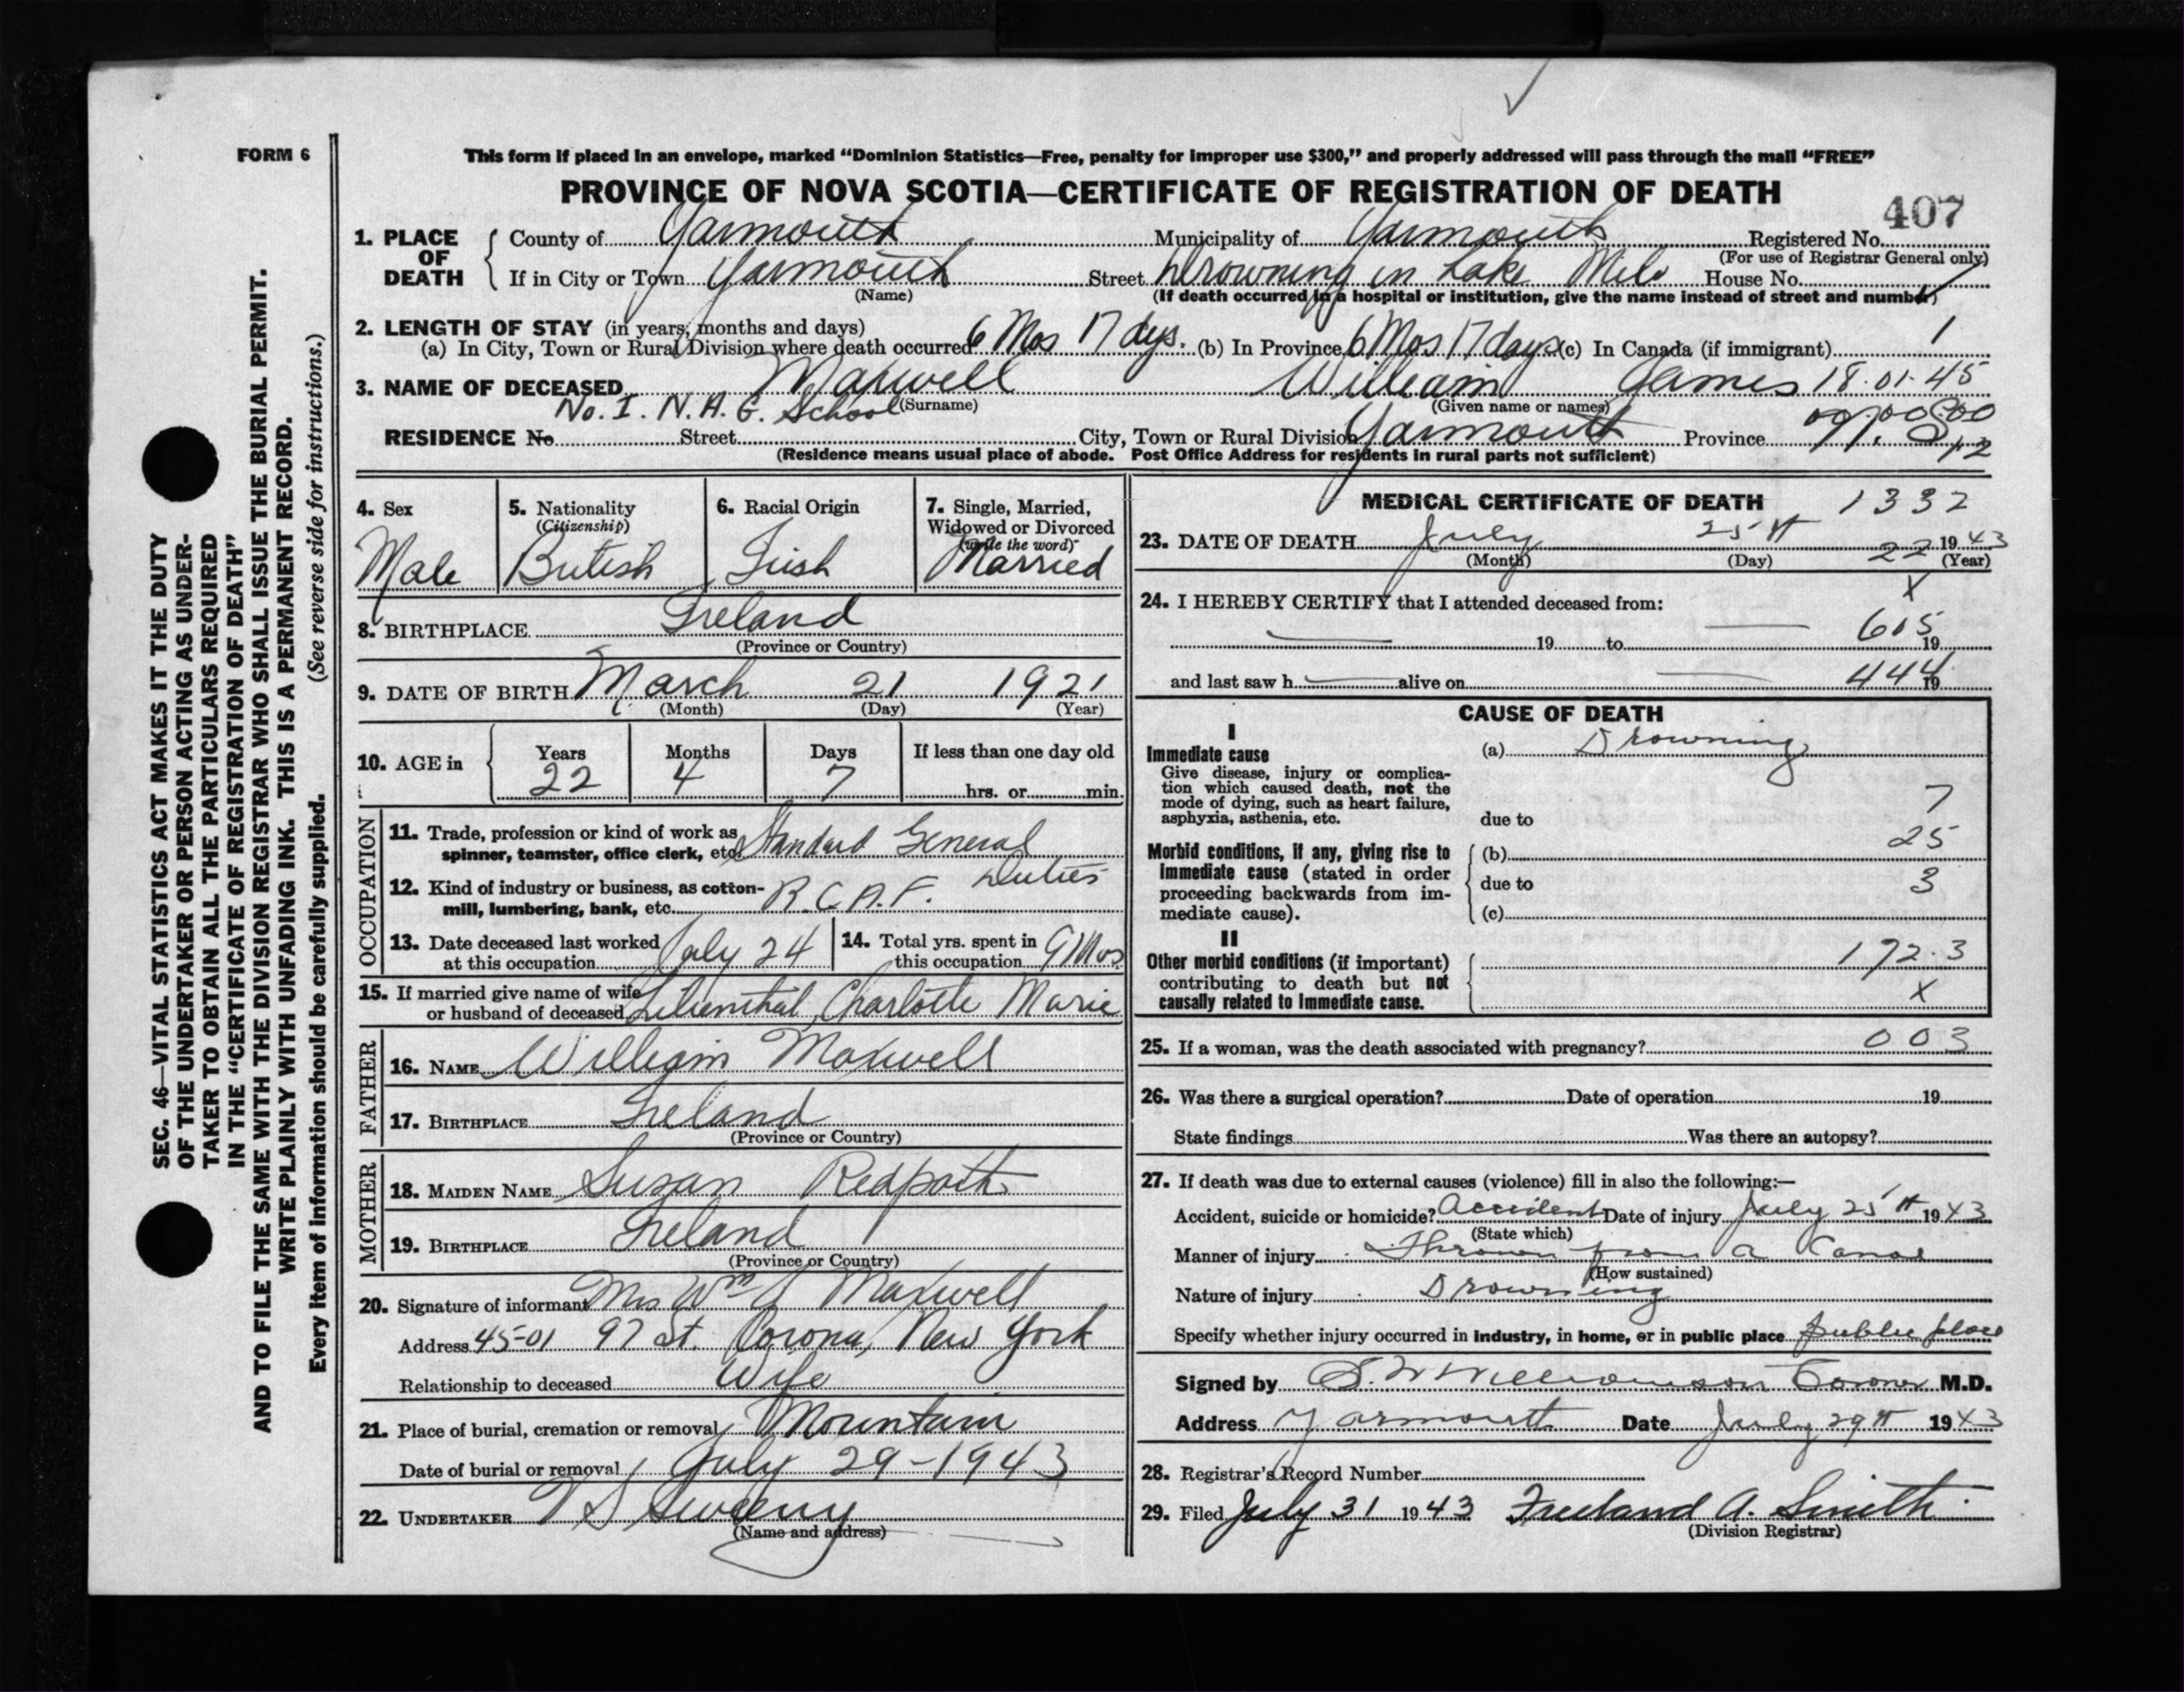 FORM 6
This form if placed in an envelope, marked “Dominion Statistics—Free, penalty for improper use $300,” and properly addressed will pass through the mail “FREE”
PROVINCE OF NOVA SCOTIA—CERTIFICATE OF REGISTRATION OF DEATH
407
1. PLACE OF DEATH
County of Yarmouth Municipality of Yarmouth Registered No.
(For use of Registrar General only)
If in City or Town Yarmouth Street Drowning in Lake Milo House No.
(Name) (If death occurred in a hospital or institution, give the name instead of street and number)
2. LENGTH OF STAY (in years, months and days)
(a) In City, Town or Rural Division where death occurred 6 Mos 17 dys. (b) In Province 6 Mos 17 days (c) In Canada (if immigrant) 1
3. NAME OF DECEASED Maxwell William James 18.01.45
(Surname) (Given name or names)
No. I. N. A. G. School
RESIDENCE No Street City, Town or Rural Division Yarmouth Province
(Residence means usual place of abode. Post Office Address for residents in rural parts not sufficient)
4. Sex
Male
5. Nationality
(Citizenship)
British
6. Racial Origin
Irish
7. Single, Married,
Widowed or Divorced
(write the word)
Married
8. BIRTHPLACE Ireland
(Province or Country)
9. DATE OF BIRTH March 21 1921
(Month) (Day) (Year)
10. AGE in
Years Months Days If less than one day old
22 4 7 hrs. or min.
OCCUPATION
11. Trade, profession or kind of work as
spinner, teamster, office clerk, etc. Standard General
Duties
12. Kind of industry or business, as cotton-
mill, lumbering, bank, etc. R.C.A.F.
13. Date deceased last worked
at this occupation July 24
14. Total yrs. spent in
this occupation 9 Mos
15. If married give name of wife
or husband of deceased Lilienthal, Charlotte Marie
FATHER
16. NAME William Maxwell
17. BIRTHPLACE Ireland
(Province or Country)
MOTHER
18. MAIDEN NAME Susan Redpath
19. BIRTHPLACE Ireland
(Province or Country)
20. Signature of informant Mrs Wm J Maxwell
Address 45-01 97 St. Corona, New York
Relationship to deceased Wife
21. Place of burial, cremation or removal Mountain
Date of burial or removal July 29-1943
22. UNDERTAKER V S Sweeny
(Name and address)
MEDICAL CERTIFICATE OF DEATH 1332
23. DATE OF DEATH July 25th 1943
(Month) (Day) (Year)
22
x
24. I HEREBY CERTIFY that I attended deceased from:
19 to 19
605
and last saw h alive on 19
444
CAUSE OF DEATH
I
Immediate cause
Give disease, injury or complica-
tion which caused death, not the
mode of dying, such as heart failure,
asphyxia, asthenia, etc.
(a) Drowning
due to
7
25
3
Morbid conditions, if any, giving rise to
immediate cause (stated in order
proceeding backwards from im-
mediate cause).
(b)
due to
(c)
II
Other morbid conditions (if important)
contributing to death but not
causally related to immediate cause.
192.3
x
25. If a woman, was the death associated with pregnancy? 003
26. Was there a surgical operation? Date of operation 19
State findings Was there an autopsy?
27. If death was due to external causes (violence) fill in also the following:—
Accident, suicide or homicide? Accident Date of injury July 25th 1943
(State which)
Manner of injury Thrown from a Canoe
(How sustained)
Nature of injury Drowning
Specify whether injury occurred in industry, in home, or in public place public place
Signed by S. W Williamson Coroner M.D.
Address Yarmouth Date July 29th 1943
28. Registrar's Record Number
29. Filed July 31 1943 Freeland A. Smith
(Division Registrar)
SEC. 46—VITAL STATISTICS ACT MAKES IT THE DUTY
OF THE UNDERTAKER OR PERSON ACTING AS UNDER-
TAKER TO OBTAIN ALL THE PARTICULARS REQUIRED
IN THE “CERTIFICATE OF REGISTRATION OF DEATH”
AND TO FILE THE SAME WITH THE DIVISION REGISTRAR WHO SHALL ISSUE THE BURIAL PERMIT.
WRITE PLAINLY WITH UNFADING INK. THIS IS A PERMANENT RECORD.
Every item of information should be carefully supplied. (See reverse side for instructions.)